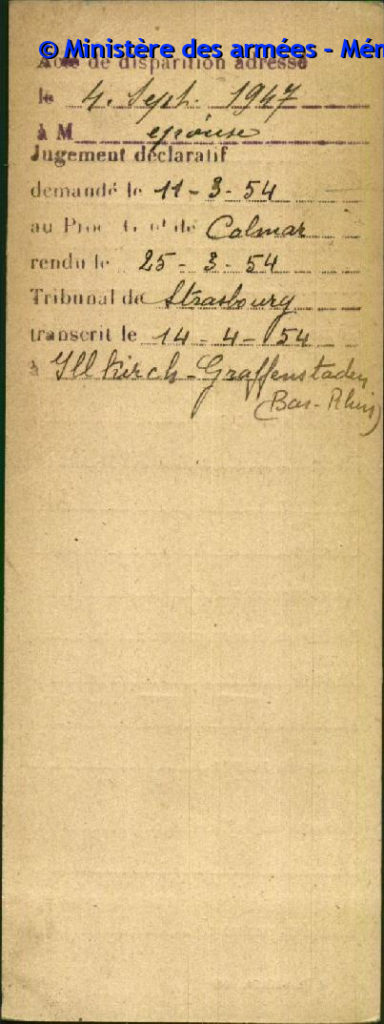 © Ministère des armées - Mé
Acte de disparition adressé
le 4. Sept. 1947
à M épouse
Jugement déclaratif
demandé le 11-3-54
au Proc. G. de Colmar
rendu le 25-3-54
Tribunal de Strasbourg
transcrit le 14-4-54
à Illkirch-Graffenstaden
(Bas-Rhin)